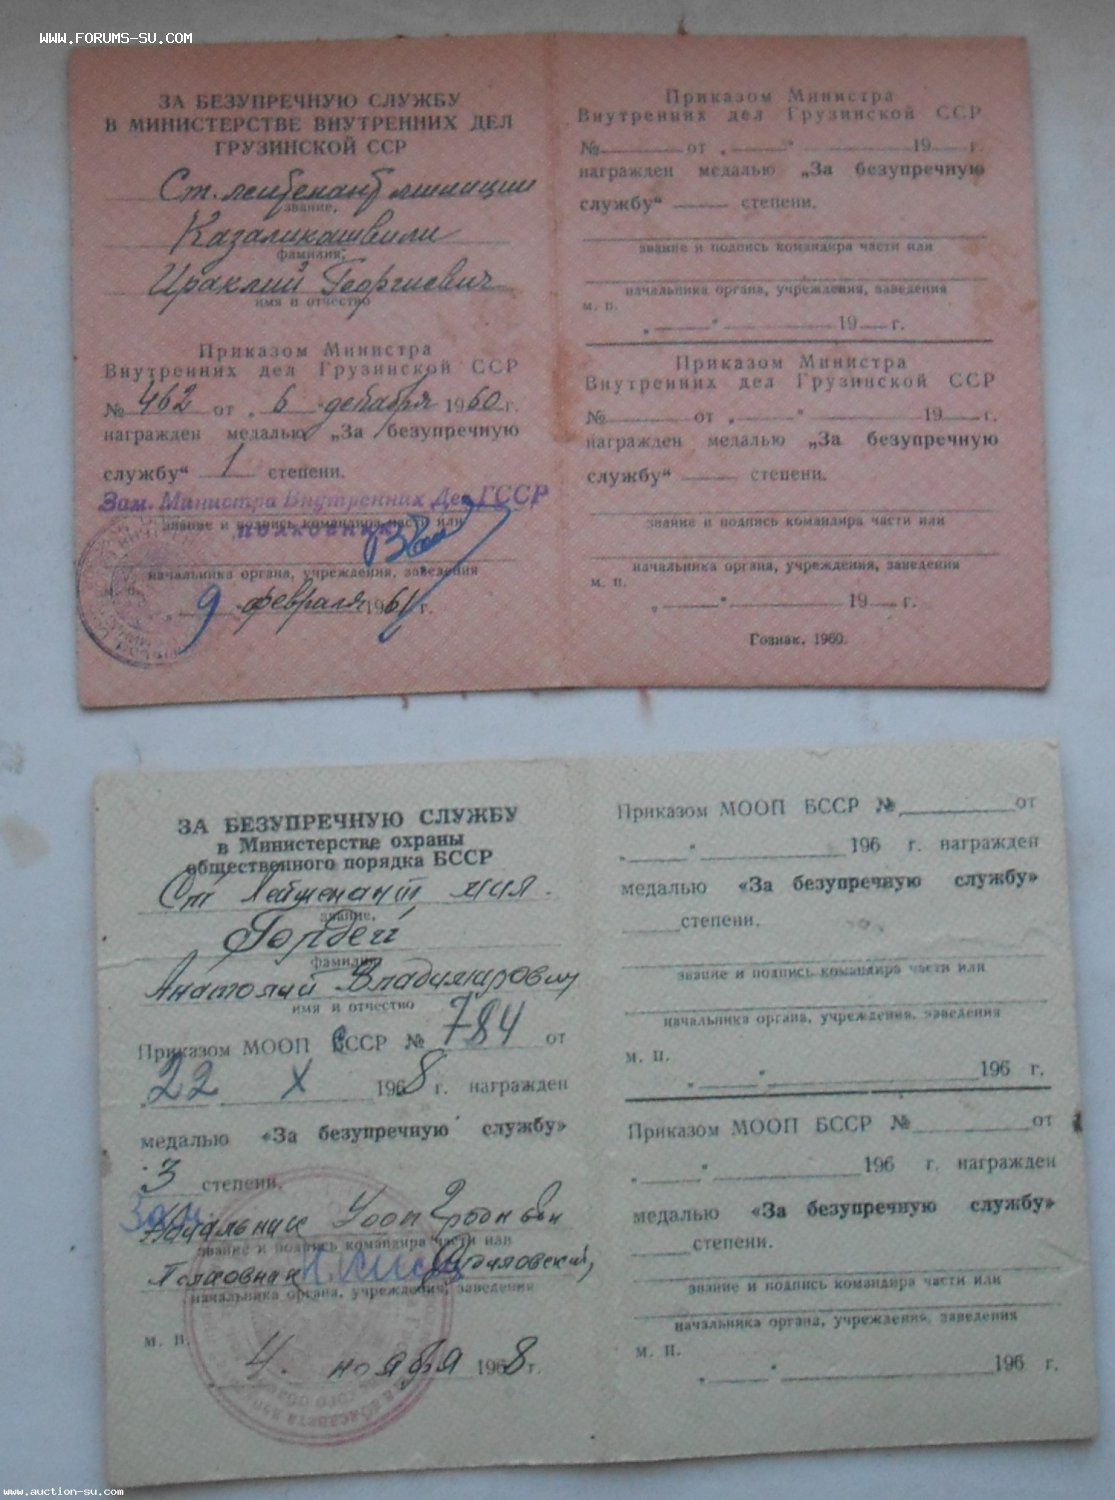 www.forums-su.com
ЗА БЕЗУПРЕЧНУЮ СЛУЖБУ
В МИНИСТЕРСТВЕ ВНУТРЕННИХ ДЕЛ
ГРУЗИНСКОЙ ССР
Ст. лейтенант милиции
звание,
Казаликашвили
фамилия,
Ираклий Георгиевич
имя и отчество
Приказом Министра
Внутренних дел Грузинской ССР
№ 462 от „ 6 " декабря 1960 г.
награжден медалью „За безупречную
службу“ 1 степени.
Зам. Министра Внутренних Дел ГССР
звание и подпись командира части или
полковник
начальника органа, учреждения, заведения
„ 9 " февраля 1961 г.
Приказом Министра
Внутренних дел Грузинской ССР
№ от „ " 19 г.
награжден медалью „За безупречную
службу“ степени.
звание и подпись командира части или
начальника органа, учреждения, заведения
м. п.
„ " 19 г.
Приказом Министра
Внутренних дел Грузинской ССР
№ от „ " 19 г.
награжден медалью „За безупречную
службу“ степени.
звание и подпись командира части или
начальника органа, учреждения, заведения
м. п.
„ " 19 г.
Гознак. 1960.
ЗА БЕЗУПРЕЧНУЮ СЛУЖБУ
в Министерстве охраны
общественного порядка БССР
Ст Лейтенант мил.
звание,
Гордей
фамилия,
Анатолий Владимирович
имя и отчество
Приказом МООП БССР № 784 от
22 X 1968 г. награжден
медалью «За безупречную службу»
3 степени.
Зам. Начальник УООП Гродн
звание и подпись командира части или
Полковник
начальника органа, учреждения, заведения
м. п.
„ 4. " ноября 1968 г.
Приказом МООП БССР № от
„ " 196 г. награжден
медалью «За безупречную службу»
степени.
звание и подпись командира части или
начальника органа, учреждения, заведения
м. п.
„ " 196 г.
Приказом МООП БССР № от
„ " 196 г. награжден
медалью «За безупречную службу»
степени.
звание и подпись командира части или
начальника органа, учреждения, заведения
м. п.
„ " 196 г.
www.auction-su.com